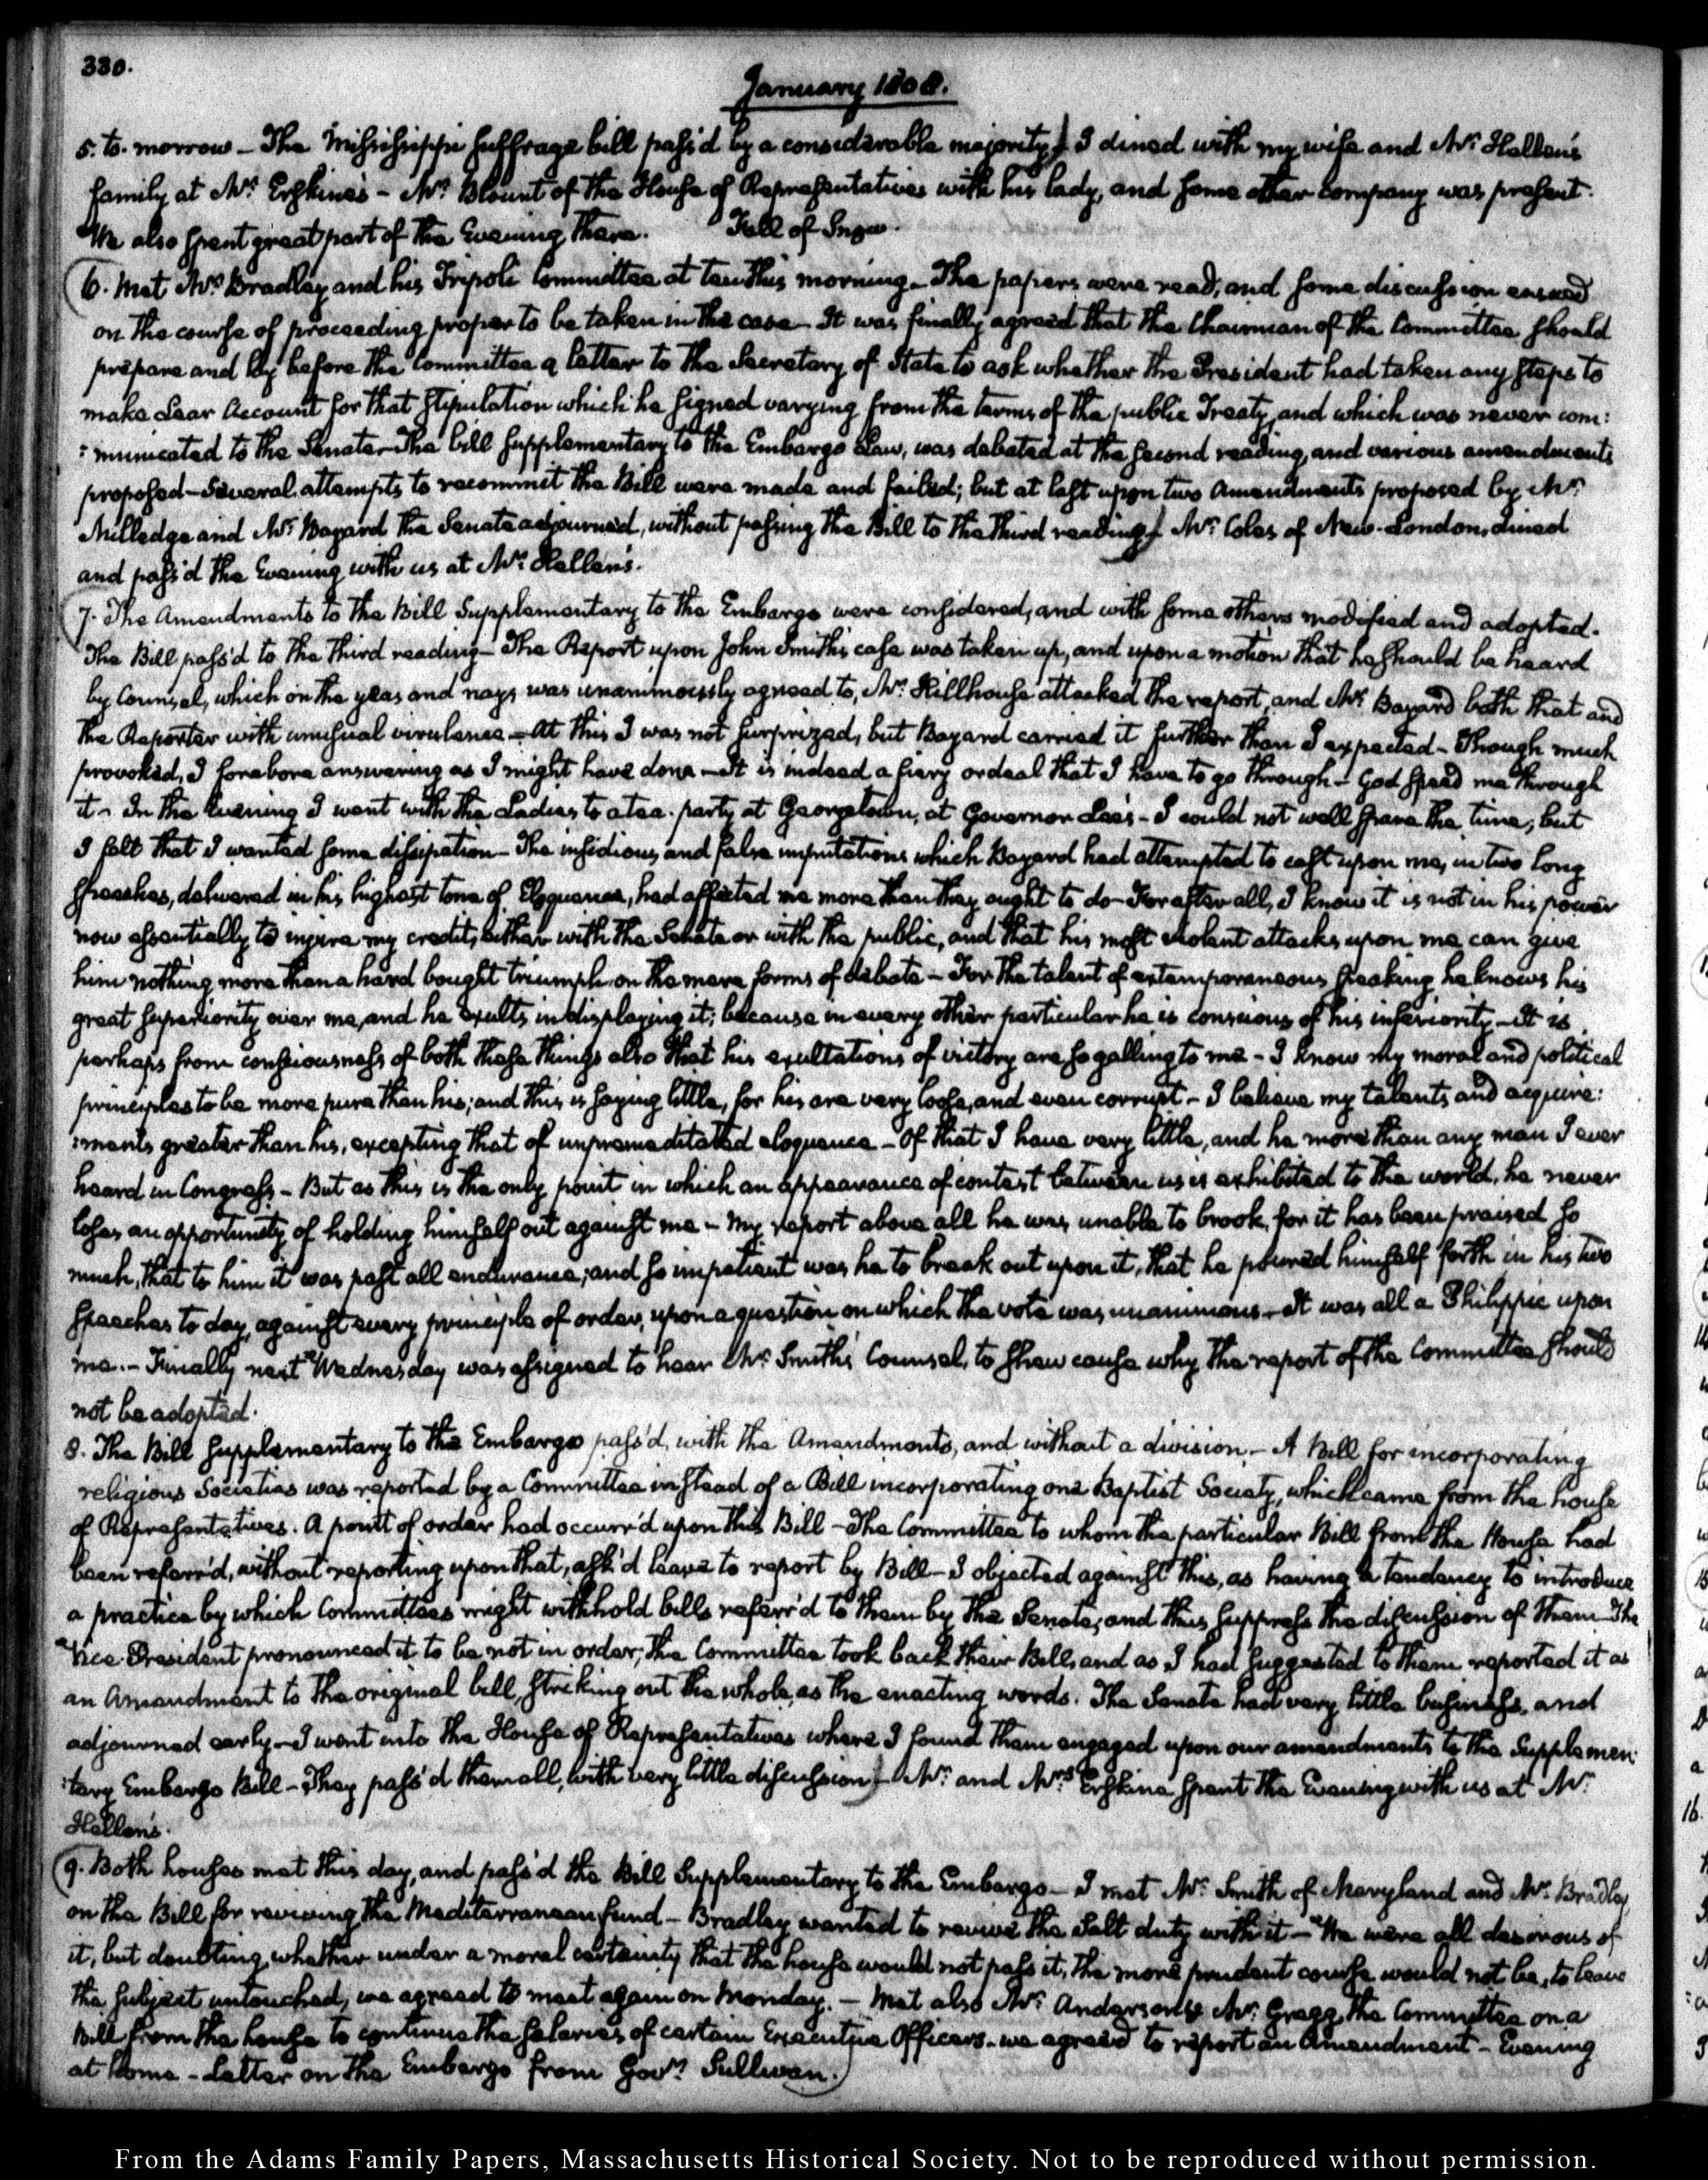 330.
January 1808.
5. to-morrow — The Mississippi suffrage bill pass'd by a considerable majority. I dined with my wife and Mr: Hellen's
family at Mr: Erskine's — Mr: Blount of the House of Representatives with his lady, and some other company was present.
We also spent great part of the Evening there. Fall of Snow.
6. Met Mr: Bradley and his Tripoli Committee at ten this morning — The papers were read, and some discussion ensued
on the course of proceeding proper to be taken in the case — It was finally agreed that the Chairman of the Committee should
prepare and lay before the Committee a letter to the Secretary of State to ask whether the President had taken any steps to
make Lear Account for that stipulation which he signed varying from the terms of the public Treaty, and which was never com:
:municated to the Senate — The bill supplementary to the Embargo Law, was debated at the second reading, and various amendments
proposed — Several attempts to recommit the Bill were made and failed; but at last upon two Amendments proposed by Mr:
Milledge and Mr: Bayard the Senate adjourned, without passing the Bill to the third reading. Mr: Coles of New-London, dined
and pass'd the Evening with us at Mr: Hellen's.
7. The Amendments to the Bill Supplementary to the Embargo were considered, and with some others modified and adopted.
The Bill pass'd to the third reading — The Report upon John Smith's case was taken up, and upon a motion that he should be heard
by Counsel, which on the yeas and nays was unanimously agreed to, Mr: Hillhouse attacked the report, and Mr: Bayard both that and
the Reporter with unusual virulence — At this I was not surprized, but Bayard carried it further than I expected — Though much
provoked, I forebore answering as I might have done — It is indeed a fiery ordeal that I have to go through — God speed me through
it — In the Evening I went with the Ladies to a tea-party at Georgetown, at Governor Lee's — I could not well spare the time; but
I felt that I wanted some dissipation — The insidious and false imputations which Bayard had attempted to cast upon me, in two long
speeches, delivered in his highest tone of Eloquence, had affected me more than they ought to do — For after all, I know it is not in his power
now essentially to injure my credit, either with the Senate or with the public, and that his most violent attacks upon me can give
him nothing more than a hard bought triumph on the mere forms of debate — For the talent of extemporaneous speaking he knows his
great superiority over me, and he exults in displaying it; because in every other particular he is conscious of his inferiority — It is
perhaps from consciousness of both these things also that his exultations of victory are so galling to me — I know my moral and political
principles to be more pure than his; and this is saying little, for his are very loose, and even corrupt — I believe my talents and acquire:
:ments greater than his, excepting that of unpremeditated eloquence — Of that I have very little, and he more than any man I ever
heard in Congress — But as this is the only point in which an appearance of contest between us is exhibited to the world, he never
loses an opportunity of holding himself out against me — My report above all he was unable to brook, for it has been praised so
much, that to him it was past all endurance; and so impatient was he to break out upon it, that he poured himself forth in his two
speeches to day, against every principle of order, upon a question on which the vote was unanimous — It was all a Philippic upon
me. — Finally next Wednesday was assigned to hear Mr: Smith's Counsel, to shew cause why the report of the Committee should
not be adopted.
8. The Bill supplementary to the Embargo pass'd, with the Amendments, and without a division. — A Bill for incorporating
religious Societies was reported by a Committee instead of a Bill incorporating one Baptist Society, which came from the house
of Representatives. A point of order had occurr'd upon this Bill — The Committee to whom the particular Bill from the House had
been referr'd, without reporting upon that, ask'd leave to report by Bill — I objected against this, as having a tendency to introduce
a practice by which Committees might withhold bills referr'd to them by the Senate, and thus suppress the discussion of them — The
Vice-President pronounced it to be not in order; the Committee took back their Bill, and as I had suggested to them reported it as
an Amendment to the original bill, striking out the whole, as the enacting words. The Senate had very little business, and
adjourned early — I went into the House of Representatives where I found them engaged upon our amendments to the Supplemen:
:tary Embargo Bill — They pass'd them all, with very little discussion. Mr: and Mrs: Erskine spent the Evening with us at Mr:
Hellen's.
9. Both houses met this day, and pass'd the Bill Supplementary to the Embargo — I met Mr: Smith of Maryland and Mr: Bradley
on the Bill for reviving the Mediterranean fund — Bradley wanted to revive the Salt duty with it — We were all desirous of
it, but doubting whether under a moral certainty that the house would not pass it, the more prudent course would not be, to leave
the subject untouched, we agreed to meet again on Monday. — Met also Mr: Anderson & Mr: Gregg, the Committee on a
Bill from the house to continue the salaries of certain Executive Officers — we agreed to report an Amendment — Evening
at home — Letter on the Embargo from Govr: Sullivan.
From the Adams Family Papers, Massachusetts Historical Society. Not to be reproduced without permission.